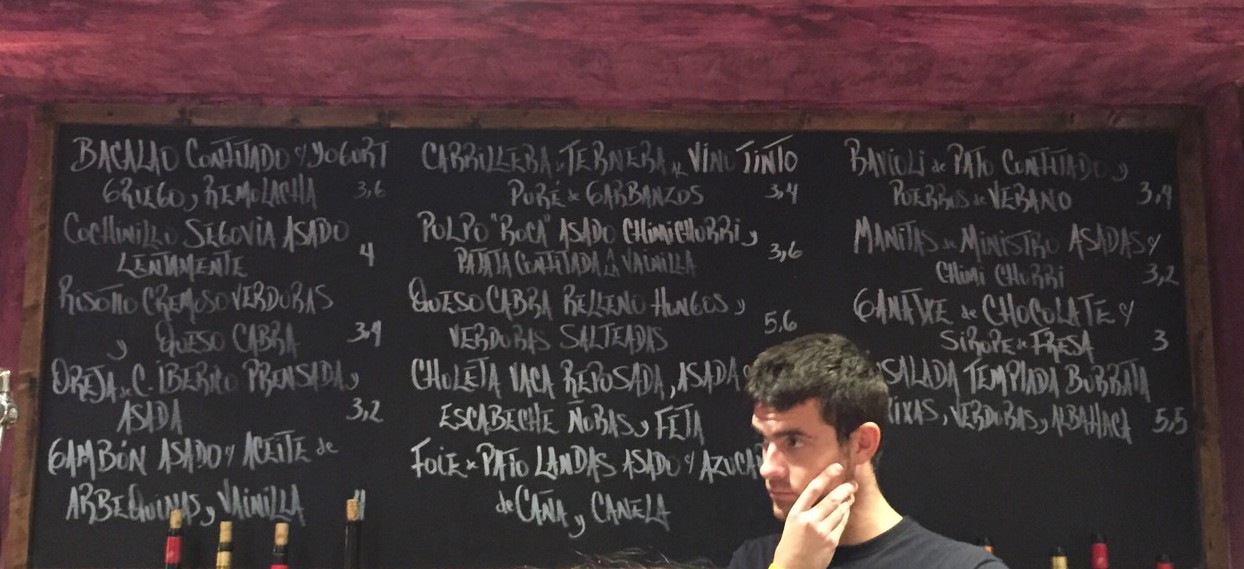 BACALAO CONFITADO Y YOGURT
GRIEGO Y REMOLACHA 3,6
COCHINILLO SEGOVIA ASADO
LENTAMENTE 4
RISOTTO CREMOSO VERDURAS
Y QUESO CABRA 3,4
OREJA de C. IBERICO PRENSADA Y
ASADA 3,2
GAMBÓN ASADO Y ACEITE de
ARBEQUINAS Y VAINILLA 4
CARRILLERA de TERNERA AL VINO TINTO
PURÉ de GARBANZOS 3,4
PULPO "ROCA" ASADO CHIMICHURRI Y
PATATA CONFITADA A LA VAINILLA 3,6
QUESO CABRA RELLENO HUNGOS Y
VERDURAS SALTEADAS 5,6
CHULETA VACA REPOSADA, ASADA
ESCABECHE ÑORAS Y FETA
FOIE de PATO LANDAS ASADO Y AZUCAR
de CAÑA Y CANELA
RAVIOLI de PATO CONFITADO Y
PUERROS de VERANO 3,4
MANITAS de MINISTRO ASADAS Y
CHIMI CHURRI 3,2
GANATXE de CHOCOLATE Y
SIROPE de FRESA 3
SALADA TEMPLADA BURRATA
IXAS, VERDURAS Y ALBAHACA 5,5